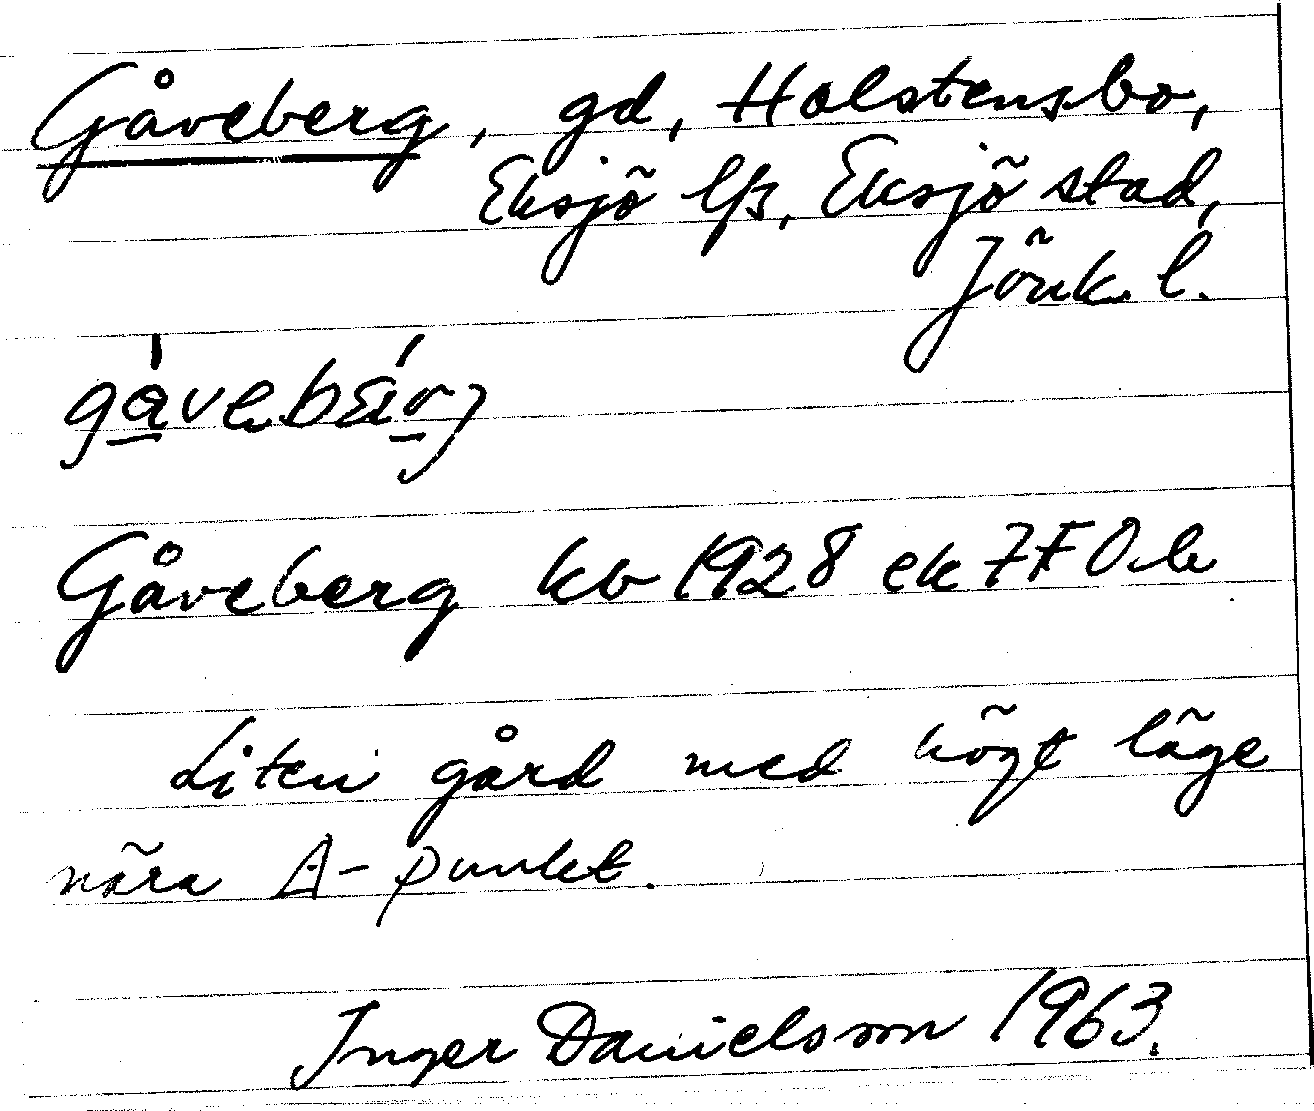 Gåveberg, gd, Holstensbo,
Eksjö lfs, Eksjö stad,
Jönk. l.
Gåveberg kb 1928 ek 7F0b
Liten gård med högt läge
nära A-punkt.
Inger Danielsson 1963.